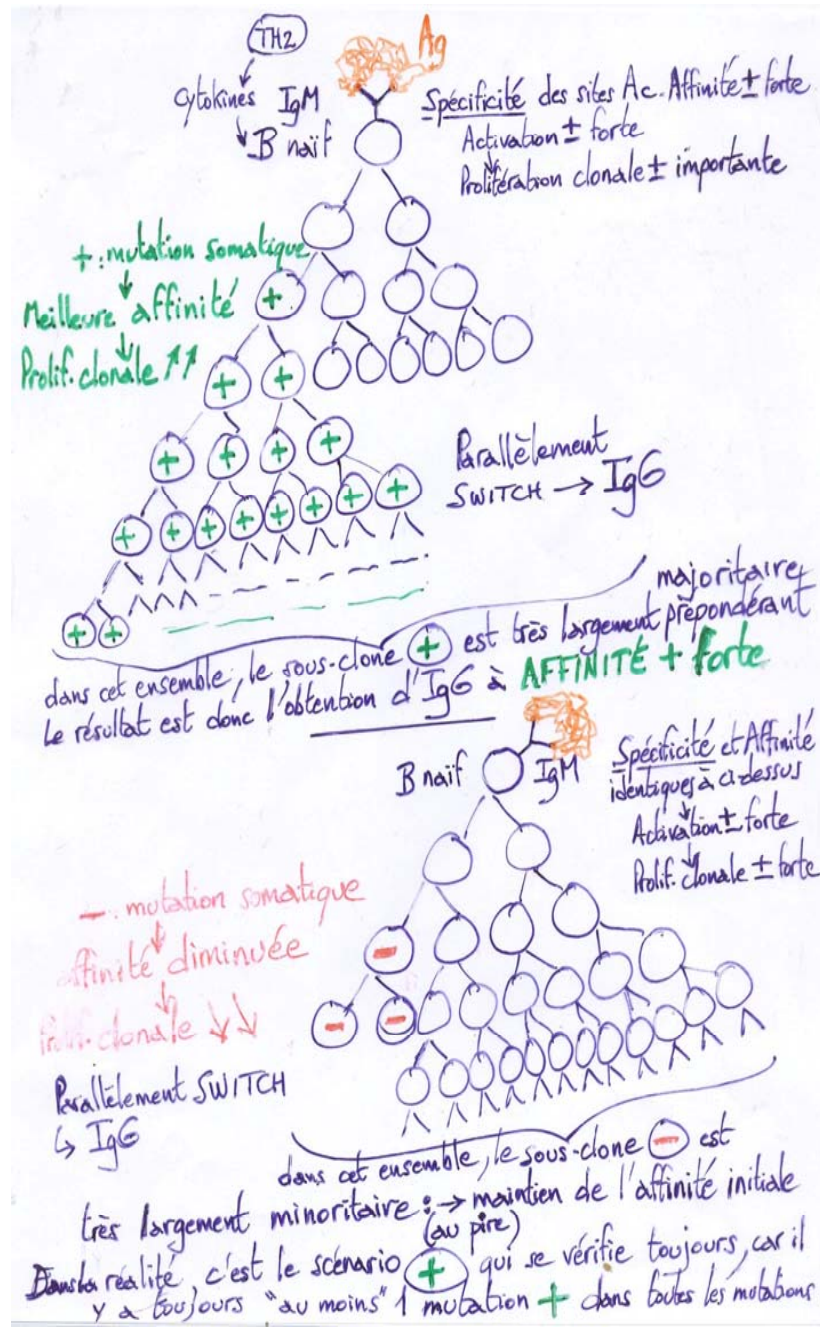 TH2
Ag
Cytokines IgM
B naïf
Spécificité des sites Ac. Affinité ± forte
Activation ± forte
Prolifération clonale ± importante
+ : mutation somatique
Meilleure affinité
Prolif. clonale ↑↑
+
+ +
+ + + +
+ + + + + + +
+ +
Parallèlement
SWITCH → IgG
majoritaire,
dans cet ensemble, le sous-clone + est très largement prépondérant
Le résultat est donc l'obtention d'IgG à AFFINITÉ + forte
B naïf IgM
Spécificité et Affinité
identiques à ci-dessus
Activation ± forte
Prolif. clonale ± forte
- : mutation somatique
affinité diminuée
Prolif. clonale ↓↓
-
- -
Parallèlement SWITCH
↳ IgG
dans cet ensemble, le sous-clone - est
très largement minoritaire : → maintien de l'affinité initiale
(au pire)
Dans la réalité, c'est le scénario + qui se vérifie toujours, car il
y a toujours "au moins" 1 mutation + dans toutes les mutations